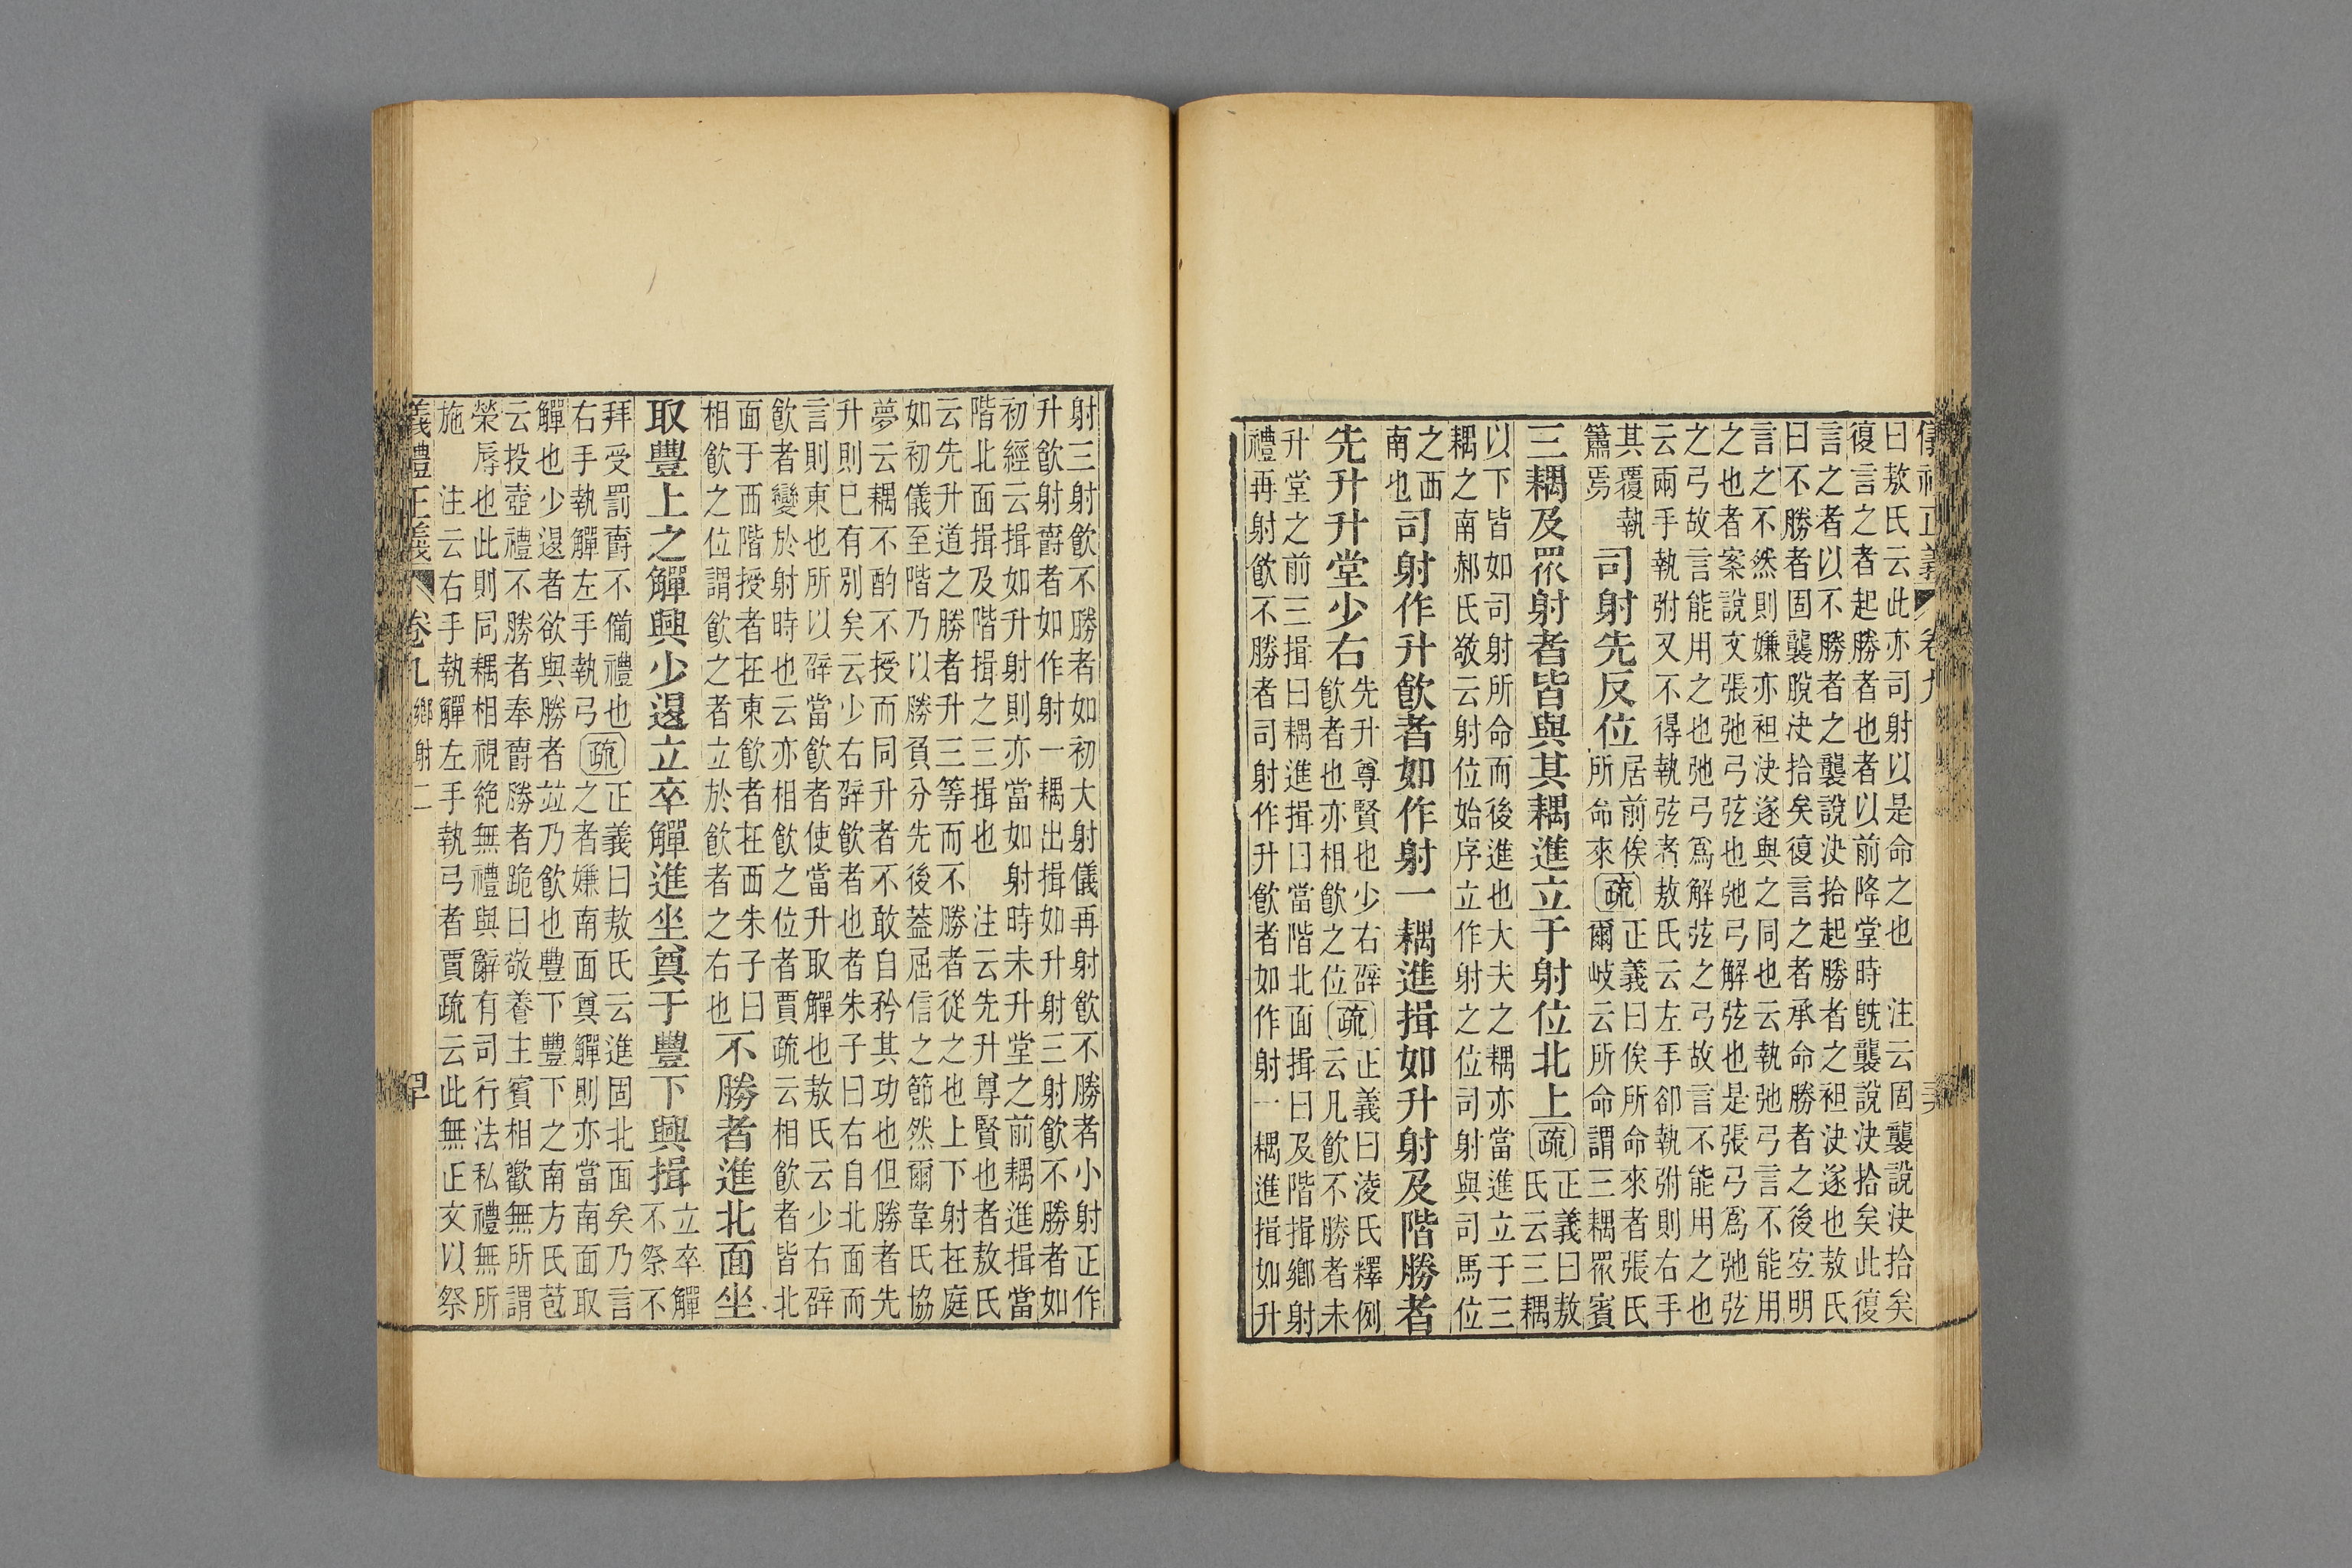 儀禮正義 卷九
曰敖氏云此亦司射以是命之也　注云固襲說決拾矣
復言之者起勝者也者以前降堂時旣襲說決拾矣此復
言之者以不勝者之襲說決拾起勝者之袒決遂也敖氏
曰不勝者固襲脫決拾矣復言之者承命勝者之後宜明
言之不然則嫌亦袒決遂與之同也云執弛弓言不能用
之也者案說文張弛弓弦也弛弓解弦也是張弓爲弛弦
之弓故言能用之也弛弓爲解弦之弓故言不能用之也
云兩手執弣又不得執弦者敖氏云左手卻執弣則右手
其覆執
簫焉
司射先反位
居前俟
所命來
疏
正義曰俟所命來者張氏
爾岐云所命謂三耦眾賓
三耦及眾射者皆與其耦進立于射位北上
疏
正義曰敖
氏云三耦
以下皆如司射所命而後進也大夫之耦亦當進立于三
耦之南郝氏敬云射位始序立作射之位司射與司馬位
之西
南也
司射作升飲者如作射一耦進揖如升射及階勝者
先升升堂少右
先升尊賢也少右辟
飲者也亦相飲之位
疏
正義曰凌氏釋例
云凡飲不勝者未
升堂之前三揖曰耦進揖曰當階北面揖曰及階揖鄉射
禮再射飲不勝者司射作升飲者如作射一耦進揖如升
射三射飲不勝者如初大射儀再射飲不勝者小射正作
升飲射爵者如作射一耦出揖如升射三射飲不勝者如
初經云揖如升射則亦當如射時未升堂之前耦進揖當
階北面揖及階揖之三揖也　注云先升尊賢也者敖氏
云先升道之勝者升三等而不勝者從之也上下射在庭
如初儀至階乃以勝負分先後蓋屈信之節然爾韋氏協
夢云耦不酌不授而同升者不敢自矜其功也但勝者先
升則已有別矣云少右辟飲者也者朱子曰右自北面而
言則東也所以辟當飲者使當升取觶也敖氏云少右辟
飲者變於射時也云亦相飲之位者賈疏云相飲者皆北
面于西階授者在東飲者在西朱子曰
相飲之位謂飲之者立於飲者之右也
不勝者進北面坐
取豐上之觶興少退立卒觶進坐奠于豐下興揖
立卒觶
不祭不
拜受罰爵不備禮也
右手執觶左手執弓
疏
正義曰敖氏云進固北面矣乃言
之者嫌南面奠觶則亦當南面取
觶也少退者欲與勝者並乃飲也豐下豐下之南方氏苞
云投壺禮不勝者奉爵勝者跪曰敬養主賓相歡無所謂
榮辱也此則同耦相視絕無禮與辭有司行法私禮無所
施　注云右手執觶左手執弓者賈疏云此無正文以祭
義禮正義 卷九鄉射二